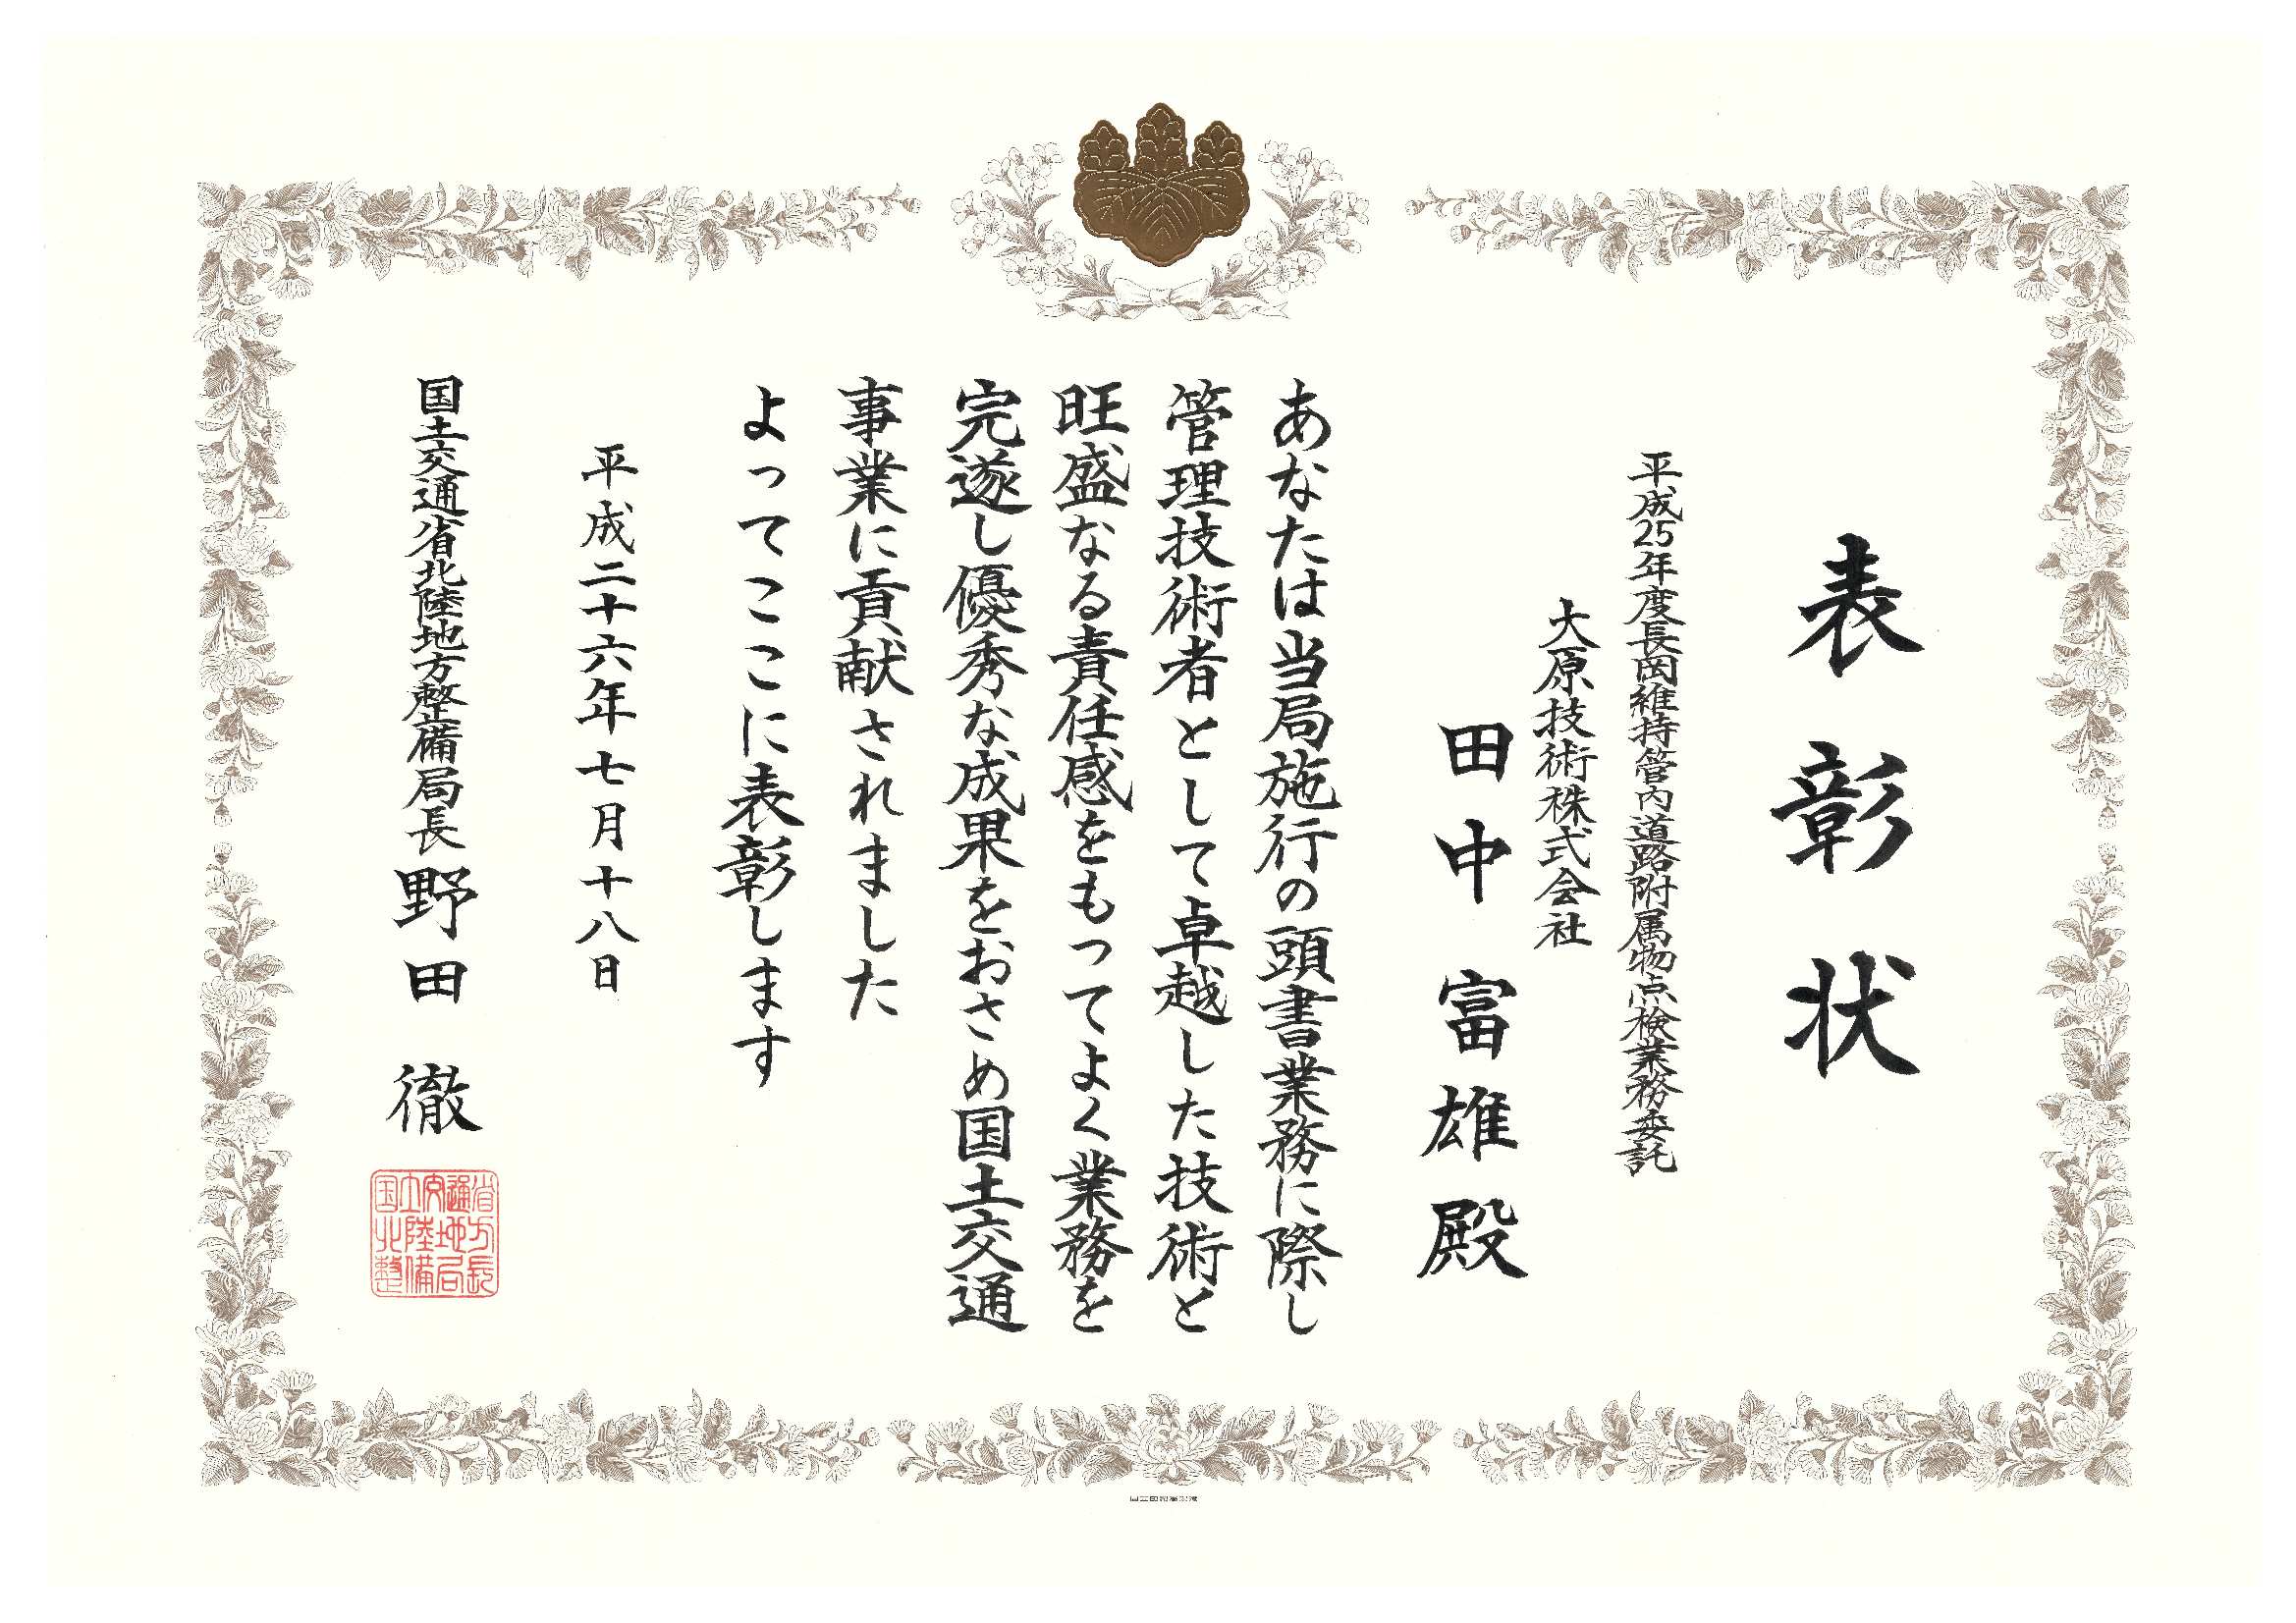 表彰状
平成25年度長岡維持管内道路附属物点検業務委託
大原技術株式会社
田中富雄殿
あなたは当局施行の頭書業務に際し
管理技術者として卓越した技術と
旺盛なる責任感をもってよく業務を
完遂し優秀な成果をおさめ国土交通
事業に貢献されました
よってここに表彰します
平成二十六年七月十八日
国土交通省北陸地方整備局長 野田徹
国土交通省
北陸地方
整備局長